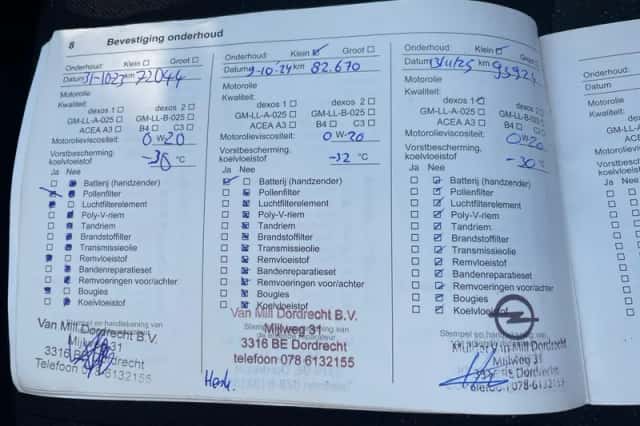 8 Bevestiging onderhoud
Onderhoud: Klein Groot
Datum 31-10-23 km 72044
Motorolie
Kwaliteit:
dexos 1 dexos 2
GM-LL-A-025 GM-LL-B-025
ACEA A3 B4 C3
Motorolieviscositeit:
0 W-20
Vorstbescherming
koelvloeistof
°C
Ja Nee
Batterij (handzender)
Pollenfilter
Luchtfilterelement
Poly-V-riem
Tandriem
Brandstoffilter
Transmissieolie
Remvloeistof
Bandenreparatieset
Remvoeringen voor/achter
Bougies
Koelvloeistof
Van Mill Dordrecht B.V.
Mijlweg 31
3316 BE Dordrecht
telefoon 078 6132155
Onderhoud: Klein Groot
Datum 9-10-'24 km 82.670
Motorolie
Kwaliteit:
dexos 1 dexos 2
GM-LL-A-025 GM-LL-B-025
ACEA A3 B4 C3
Motorolieviscositeit:
0 W-20
Vorstbescherming
koelvloeistof
-32 °C
Ja Nee
Batterij (handzender)
Pollenfilter
Luchtfilterelement
Poly-V-riem
Tandriem
Brandstoffilter
Transmissieolie
Remvloeistof
Bandenreparatieset
Remvoeringen voor/achter
Bougies
Koelvloeistof
Van Mill Dordrecht B.V.
Mijlweg 31
3316 BE Dordrecht
telefoon 078 6132155
Onderhoud: Klein Groot
Datum km 93924
Motorolie
Kwaliteit:
dexos 1 dexos 2
GM-LL-A-025 GM-LL-B-025
ACEA A3 B4 C3
Motorolieviscositeit:
0 W-20
Vorstbescherming
koelvloeistof
-30 °C
Ja Nee
Batterij (handzender)
Pollenfilter
Luchtfilterelement
Poly-V-riem
Tandriem
Brandstoffilter
Transmissieolie
Remvloeistof
Bandenreparatieset
Remvoeringen voor/achter
Bougies
Koelvloeistof
Stempel en handtekening van
Van Mill Dordrecht
Mijlweg 31
Dordrecht
Onderhoud:
Datum
Motorolie
Kwaliteit: